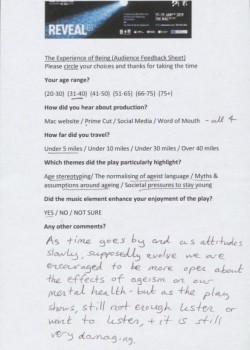 REVEAL
THE MAC
The Experience of Being (Audience Feedback Sheet)
Please circle your choices and thanks for taking the time
Your age range?
(20-30) (31-40) (41-50) (51-65) (66-75) (75+)
How did you hear about production?
Mac website / Prime Cut / Social Media / Word of Mouth - all 4
How far did you travel?
Under 5 miles / Under 10 miles / Under 30 miles / Over 40 miles
Which themes did the play particularly highlight?
Age stereotyping/ The normalising of ageist language / Myths &
assumptions around ageing / Societal pressures to stay young
Did the music element enhance your enjoyment of the play?
YES / NO / NOT SURE
Any other comments?
As time goes by and as attitudes
slowly, supposedly evolve we are
encouraged to be more open about
the effects of ageism on our
mental health - but as the play
shows, still not enough listen or
want to listen, + it is still
very damaging.